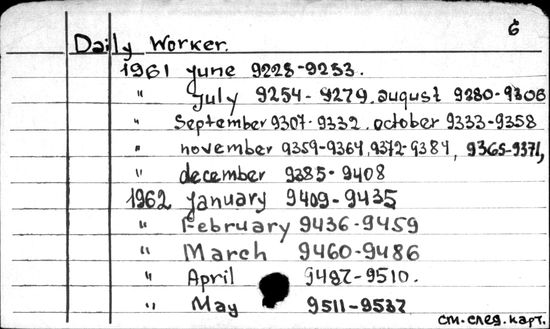 6
Daily Worker.
1961 june 9228-9253.
" july 9254-9279. august 9280-9306
" September 9307-9332. october 9333-9358
" november 9359-9364, 9372-9384, 9365-9371,
" december 9385-9408
1962 January 9409-9435
" February 9436-9459
" March 9460-9486
" April 9487-9510.
" May 9511-9537
см. след. карт.